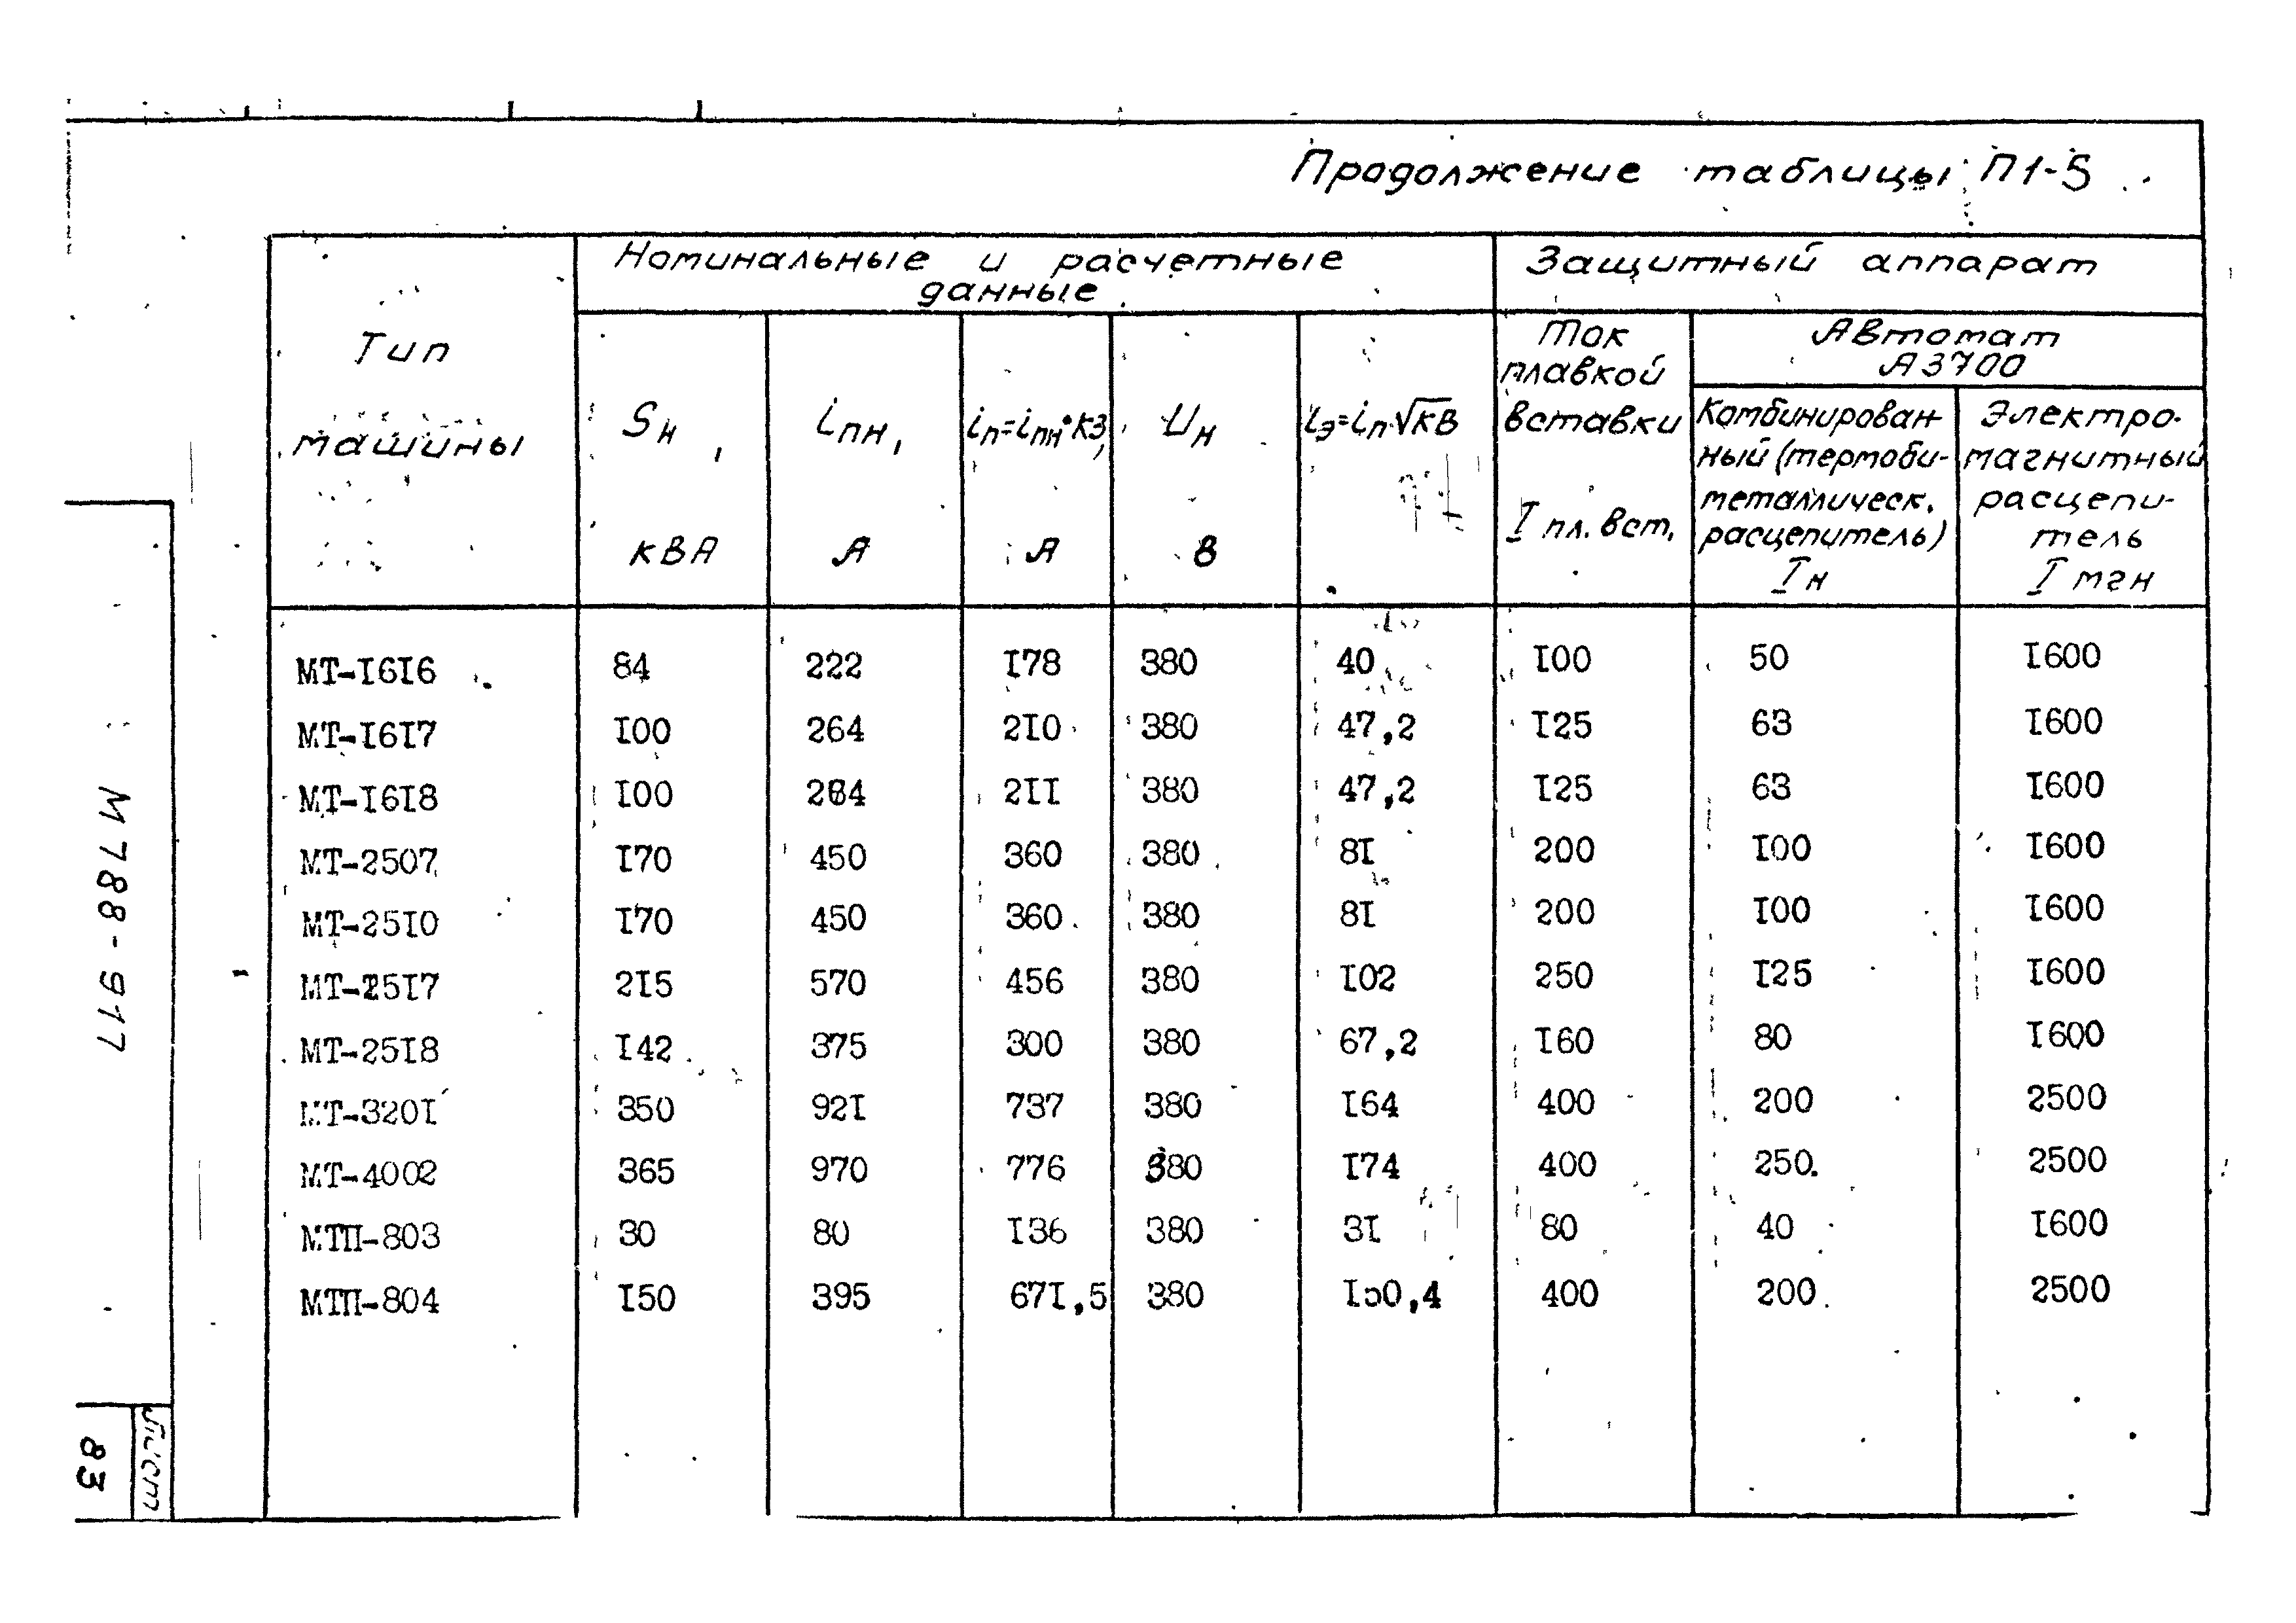 Продолжение таблицы П1-5
Тип машины
Номинальные и расчетные данные
Защитный аппарат
Sн, кВА
iпн, А
iп=iпн·кз, А
Uн В
iэ=iп√кв
Ток плавкой вставки I пл. вст.
Автомат А3700
Комбинирован-
ный (термоби-
металлическ.
расцепитель)
Iн
Электро-
магнитный
расцепи-
тель
I мгн
МТ-I6I6 84 222 I78 380 40 I00 50 I600
МТ-I6I7 I00 264 2I0 380 47,2 I25 63 I600
МТ-I6I8 I00 264 2II 380 47,2 I25 63 I600
МТ-2507 I70 450 360 380 8I 200 I00 I600
МТ-25I0 I70 450 360 380 8I 200 I00 I600
МТ-25I7 2I5 570 456 380 I02 250 I25 I600
МТ-25I8 I42 375 300 380 67,2 I60 80 I600
МТ-320I 350 92I 737 380 I64 400 200 2500
МТ-4002 365 970 776 380 I74 400 250 2500
МТП-803 30 80 I36 380 3I 80 40 I600
МТП-804 I50 395 67I,5 380 400 200 2500
М788-917
Лист
83